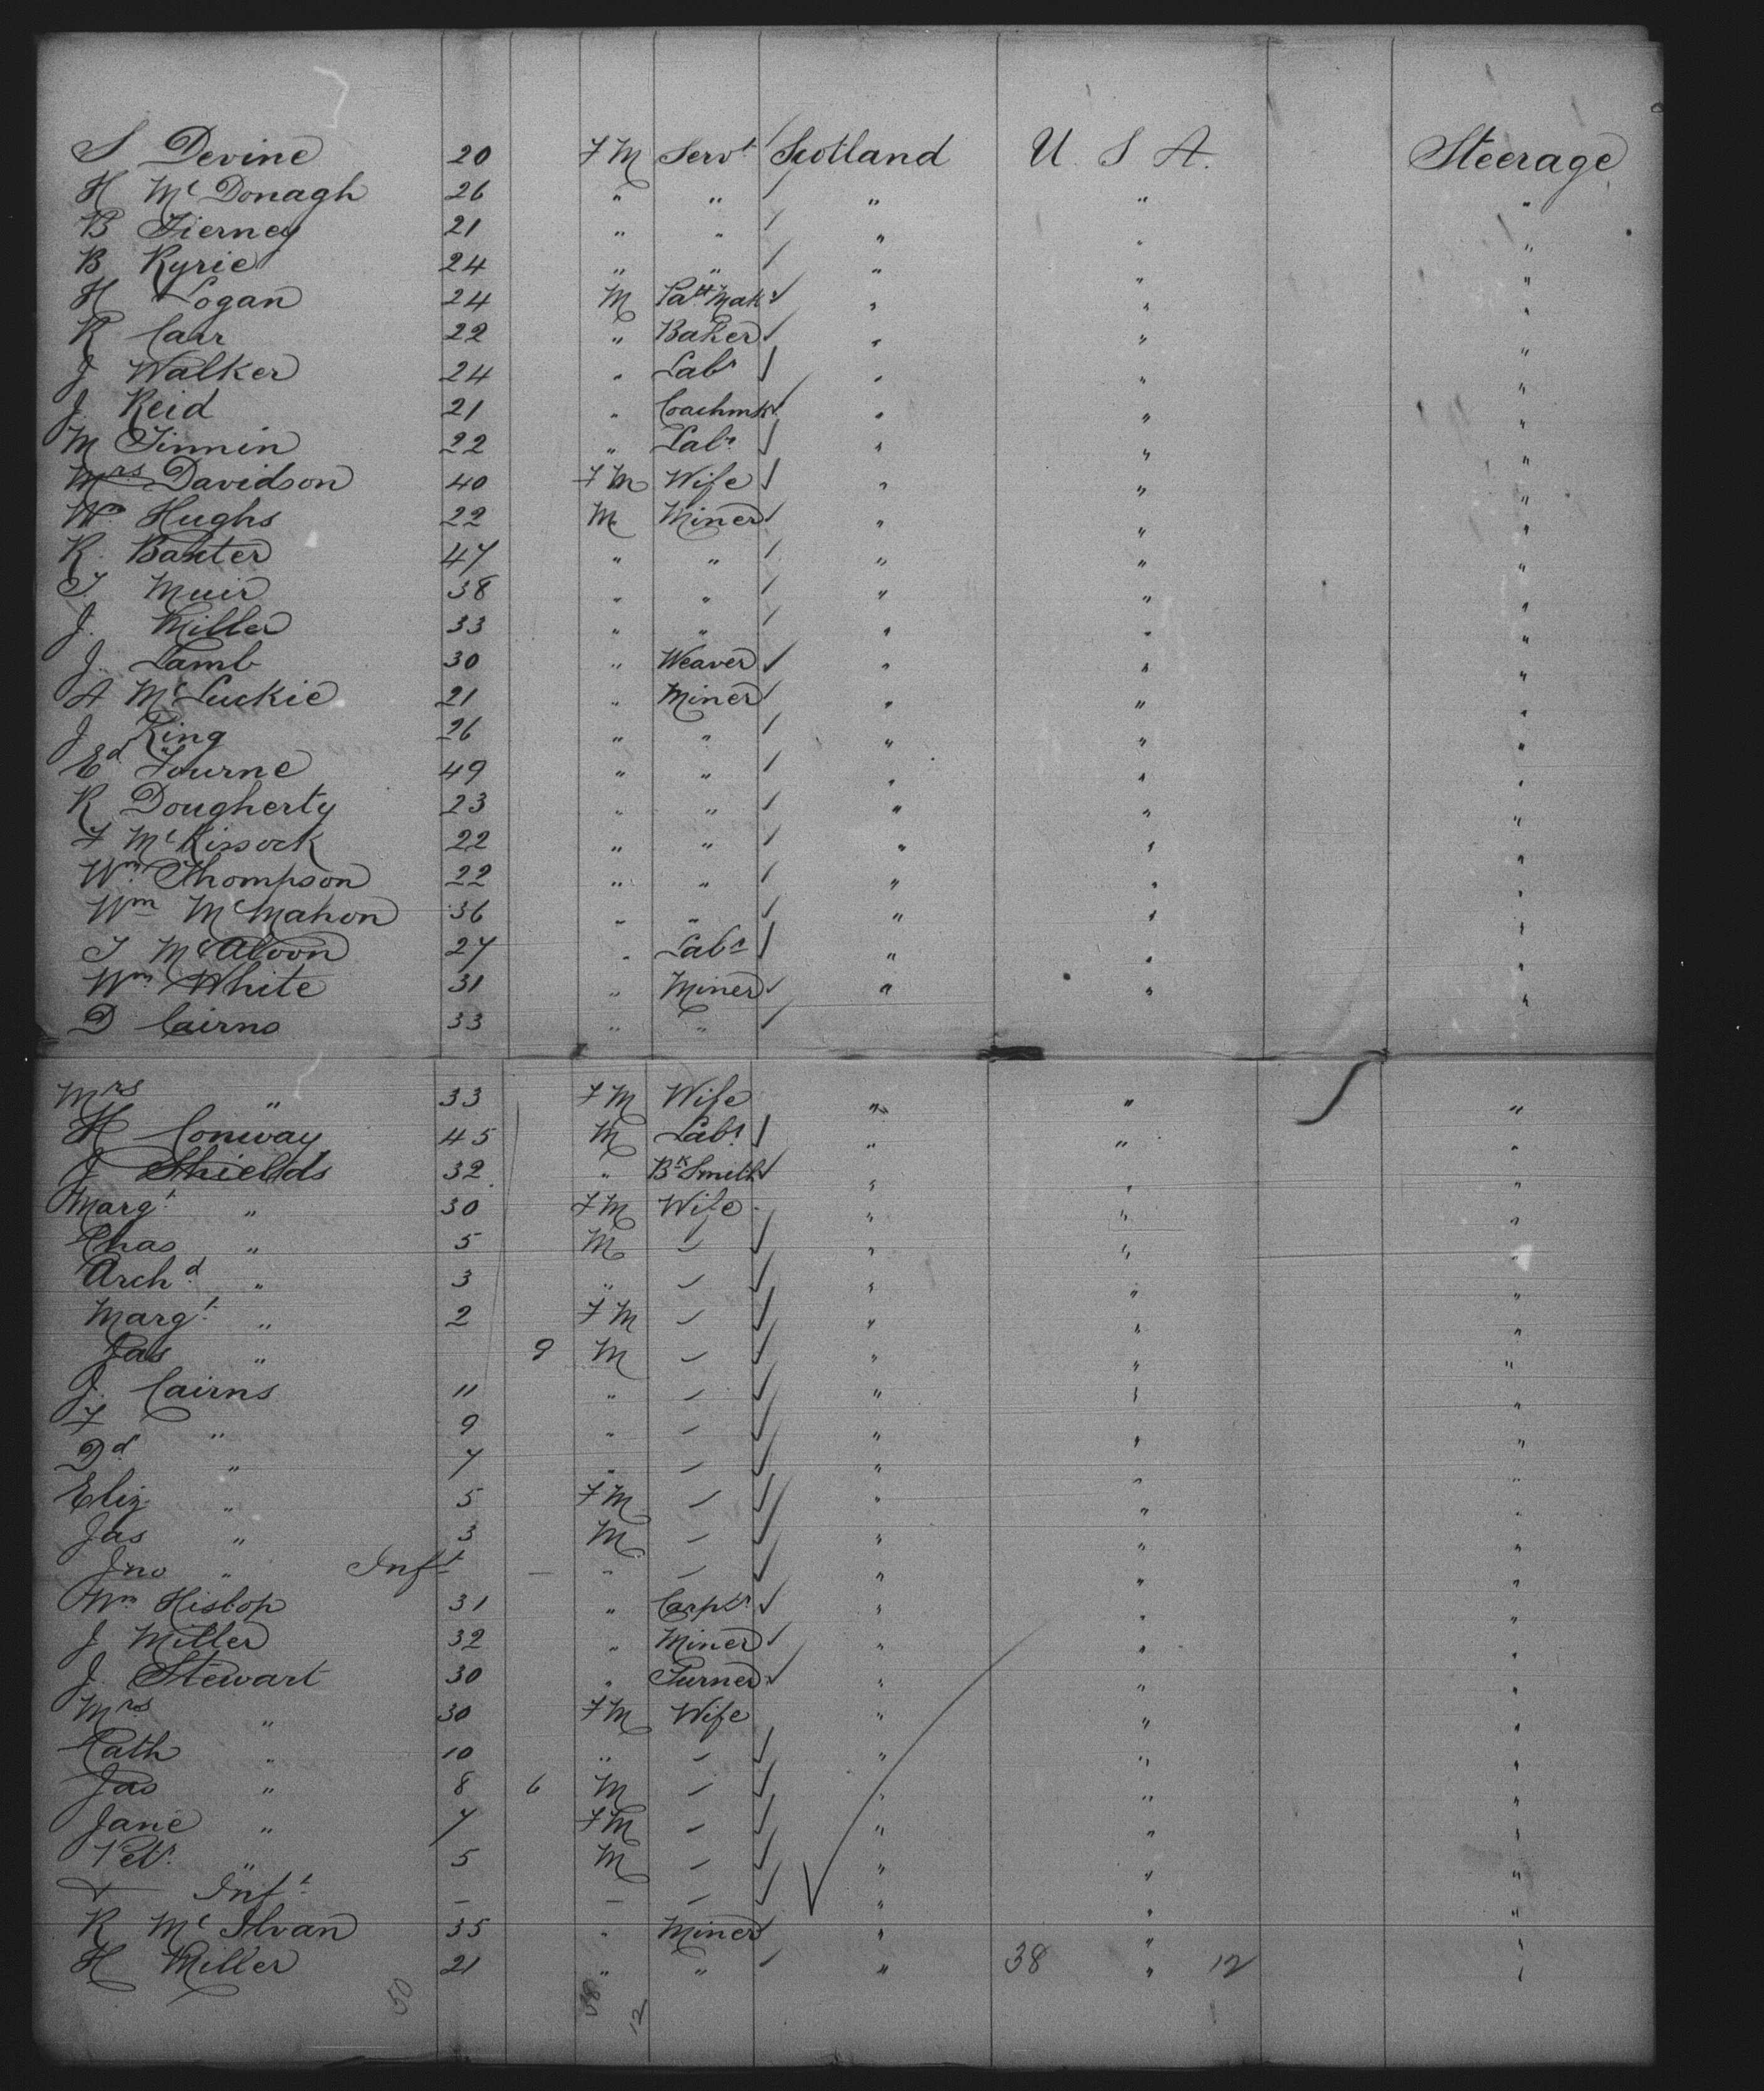 S Devine 20 FM Servt Scotland U. S. A. Steerage
H McDonagh 26 " " " " "
B Tierney 21 " " " " "
B Kyrie 24 " " " " "
H Logan 24 M Patt Mak " " "
R Carr 22 " Baker " " "
J Walker 24 " Labr " " "
J. Reid 21 " Coachmkr " " "
M Tinnin 22 " Labr " " "
Mrs Davidson 40 FM Wife " " "
Wm Hughs 22 M Miner " " "
R. Baxter 47 " " " " "
T. Muir 38 " " " " "
J. Miller 33 " " " " "
J. Lamb 30 " Weaver " " "
A McLuckie 21 " Miner " " "
J King 26 " " " " "
Ed Fourne 49 " " " " "
R Dougherty 23 " " " " "
F McKissock 22 " " " " "
Wm Thompson 22 " " " " "
Wm McMahon 36 " " " " "
T McAloon 27 " Labr " " "
Wm White 31 " Miner " " "
D Cairns 33 " "
Mrs " 33 FM Wife " " "
H Conway 45 M Labr " " "
J Shields 32 " Bk Smith " " "
Margt " 30 FM Wife " " "
Chas " 5 M " " "
Archd " 3 " " " "
Margt " 2 FM " " "
Jas " 9 M " " "
J. Cairns 11 " " " "
F " 9 " " " "
Dd " 7 " " " "
Eliz " 5 FM " " "
Jas " 3 M " " "
Jno " Inft — " " " "
Wm Hislop 31 " Carptr " " "
J Miller 32 " Miner " " "
J. Stewart 30 " Turner " " "
Mrs " 30 FM Wife " " "
Cath " 10 " " " "
Jas " 8 6 M " " "
Jane " 7 FM " " "
Petr " 5 M " " "
+ " Inft — — " " "
R McIlvan 35 " Miner " " "
H Miller 21 " " " 38 " 12 "
50 38 12